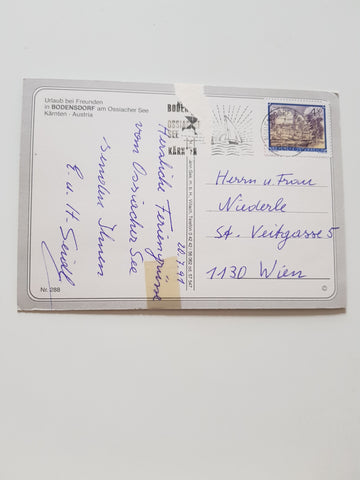 Urlaub bei Freunden
in BODENSDORF am Ossiacher See
Kärnten - Austria
BODEN
OSSIACHER
SEE
KÄRNTEN
22.7.91
Herzliche Feriengrüsse
vom Ossiacher See
senden Ihnen
E. u. H. Seidl
Herrn u. Frau
Niederle
St. Veitgasse 5
1130 Wien
Nr. 288
©